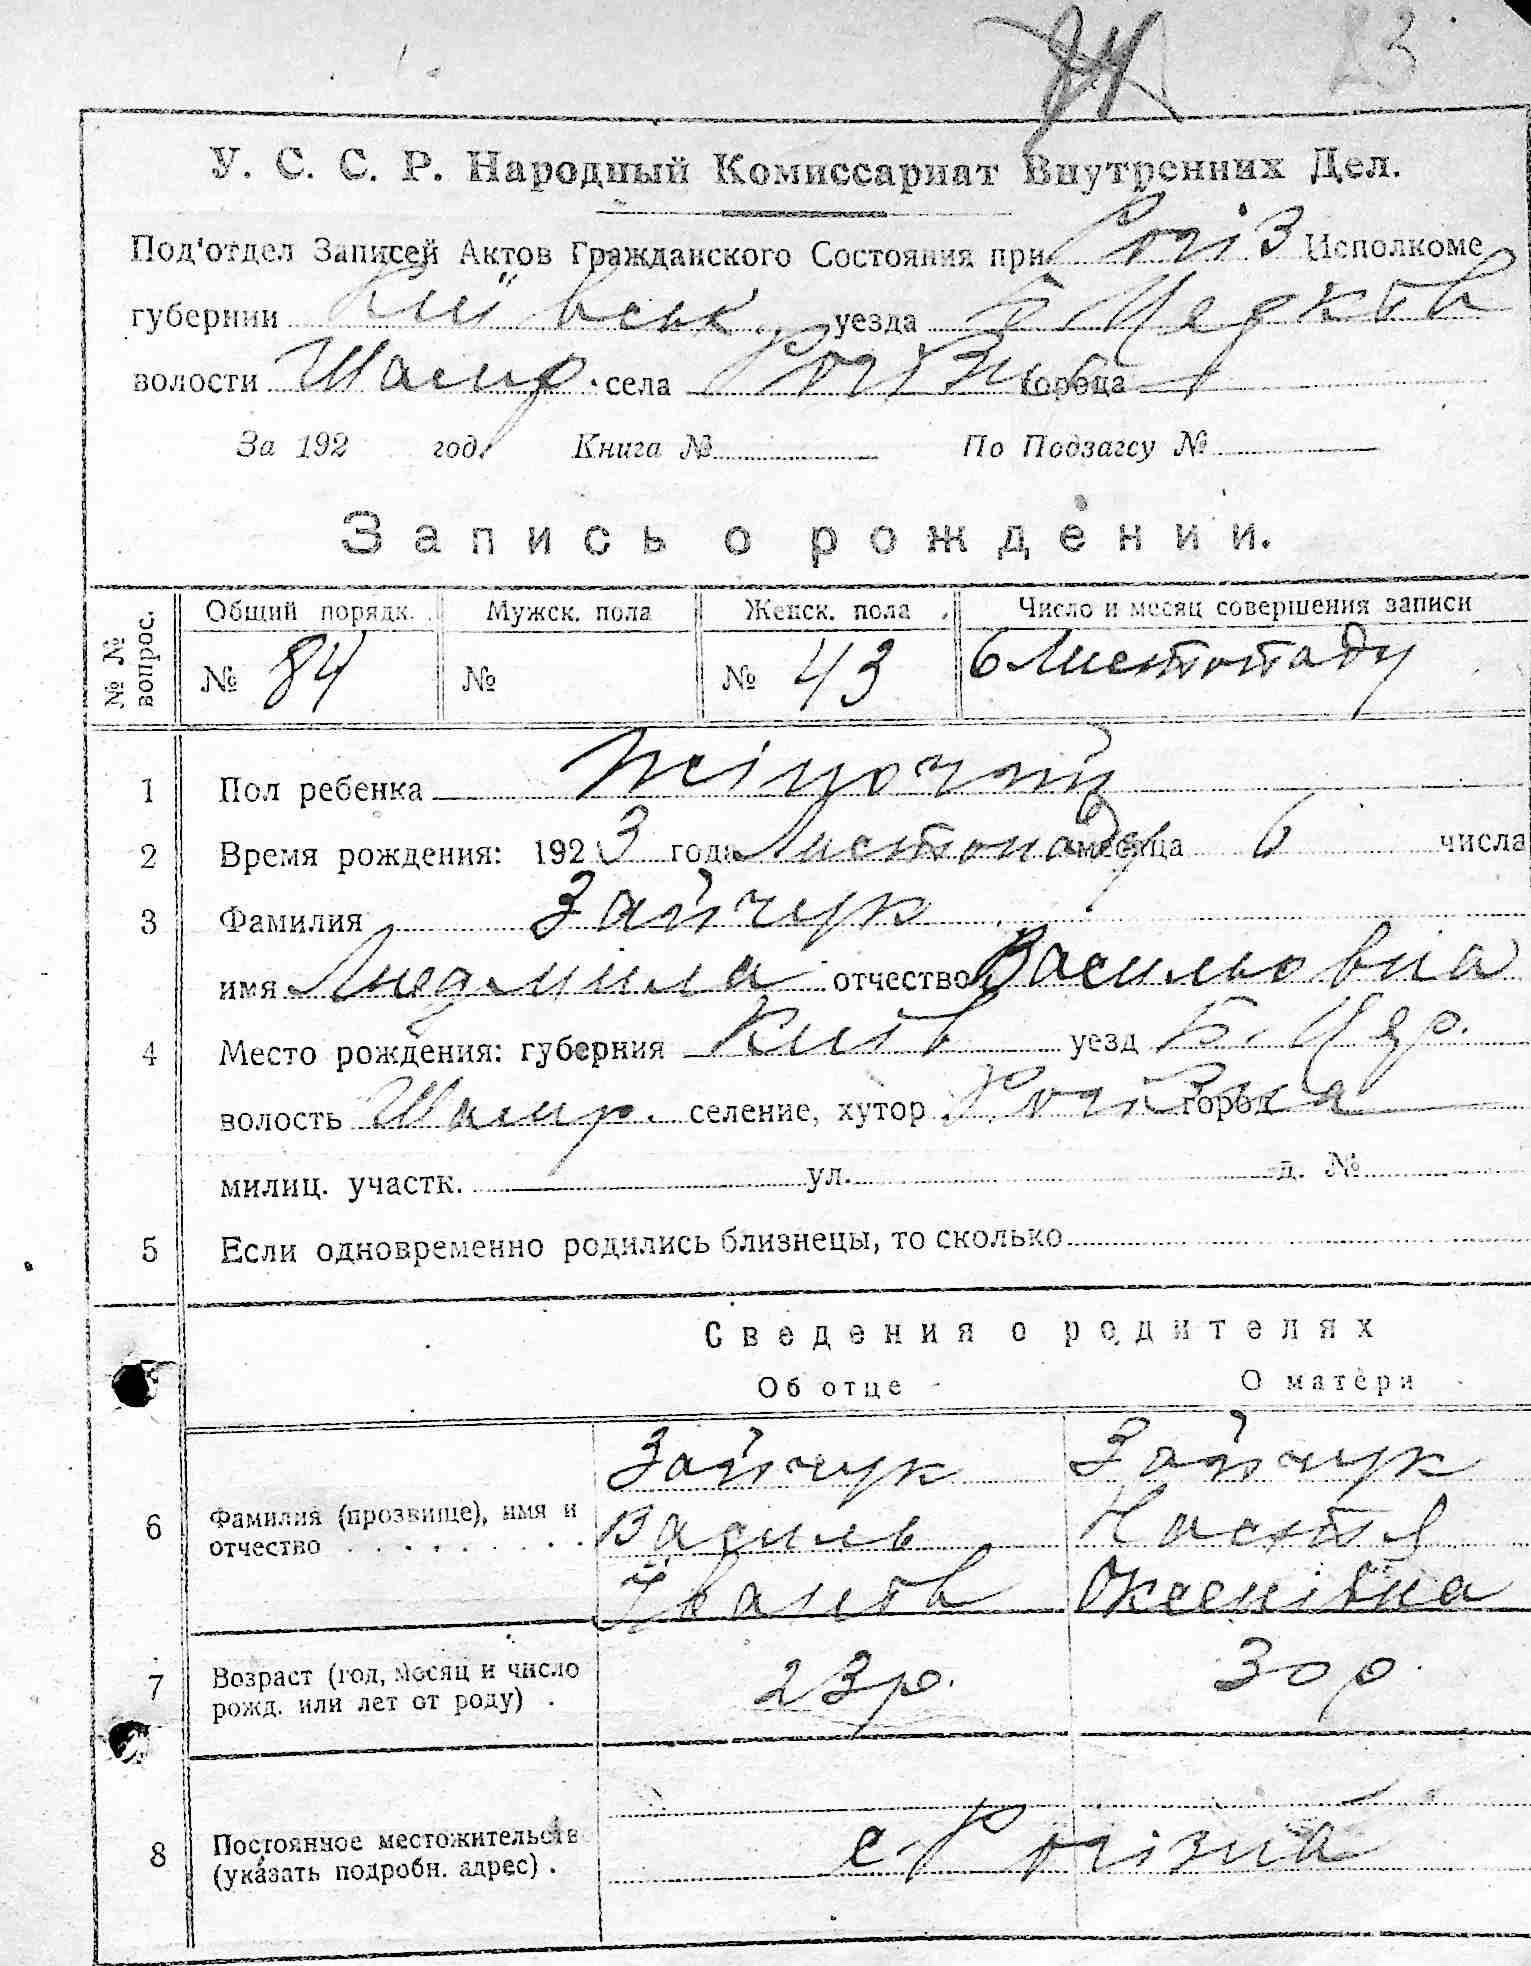 83
У. С. С. Р. Народный Комиссариат Внутренних Дел.
Под'отдел Записей Актов Гражданского Состояния при Рогіз Исполкоме
губернии Київськ. уезда Б Церков
волости Шамр. села Рогізна города
За 192 год. Книга № По Подзагсу №
Запись о рождении.
№ № вопрос. Общий порядк. Мужск. пола Женск. пола Число и месяц совершения записи
№ 84 № № 43 6 Листопаду
1 Пол ребенка Жіночий
2 Время рождения: 1923 года Листопаду месяца 6 числа
3 Фамилия Зайчук
имя Людмила отчество Васильовна
4 Место рождения: губерния Київ уезд Б. Цер.
волость Шамр. селение, хутор Рогізна город
милиц. участк. ул. д. №
5 Если одновременно родились близнецы, то сколько
Сведения о родителях
Об отце О матери
Зайчук Зайчук
6 Фамилия (прозвище), имя и Василь Настя
отчество Іванов Оксенівна
7 Возраст (год, месяц и число 23 р. 30 р.
рожд. или лет от роду)
8 Постоянное местожительств с. Рогізна
(указать подробн. адрес)